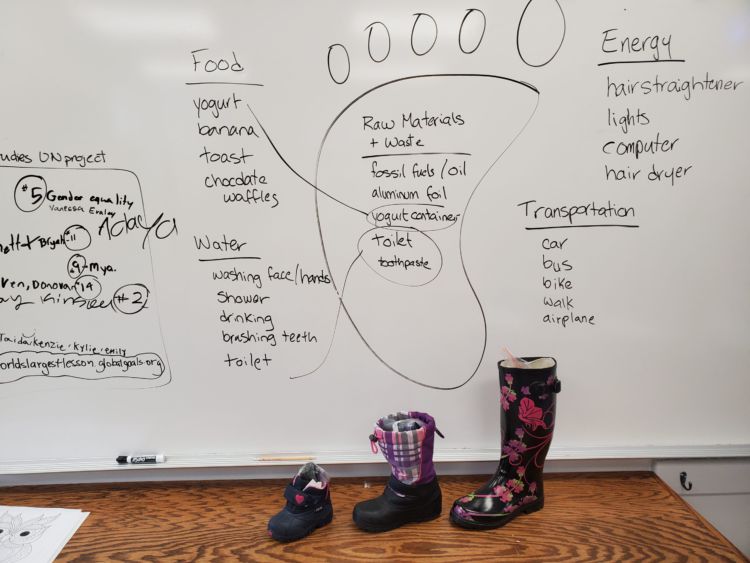 Food
yogurt
banana
toast
chocdate
waffles
Water
washing face/hands
shower
drinking
brushing teeth
toilet
Raw Materials
+ Waste
fossil fuels/oil
aluminum foil
yogurt container
toilet
toothpaste
Energy
hairstraightener
lights
computer
hair dryer
Transportation
car
bus
bike
walk
airplane
UN project
#5 Gender equality
Vanessa
#11
#9 - Mya.
Donovan #14
#2
Kenzie, Kylie, emily
worldslargestlesson.globalgoals.org
EXPO